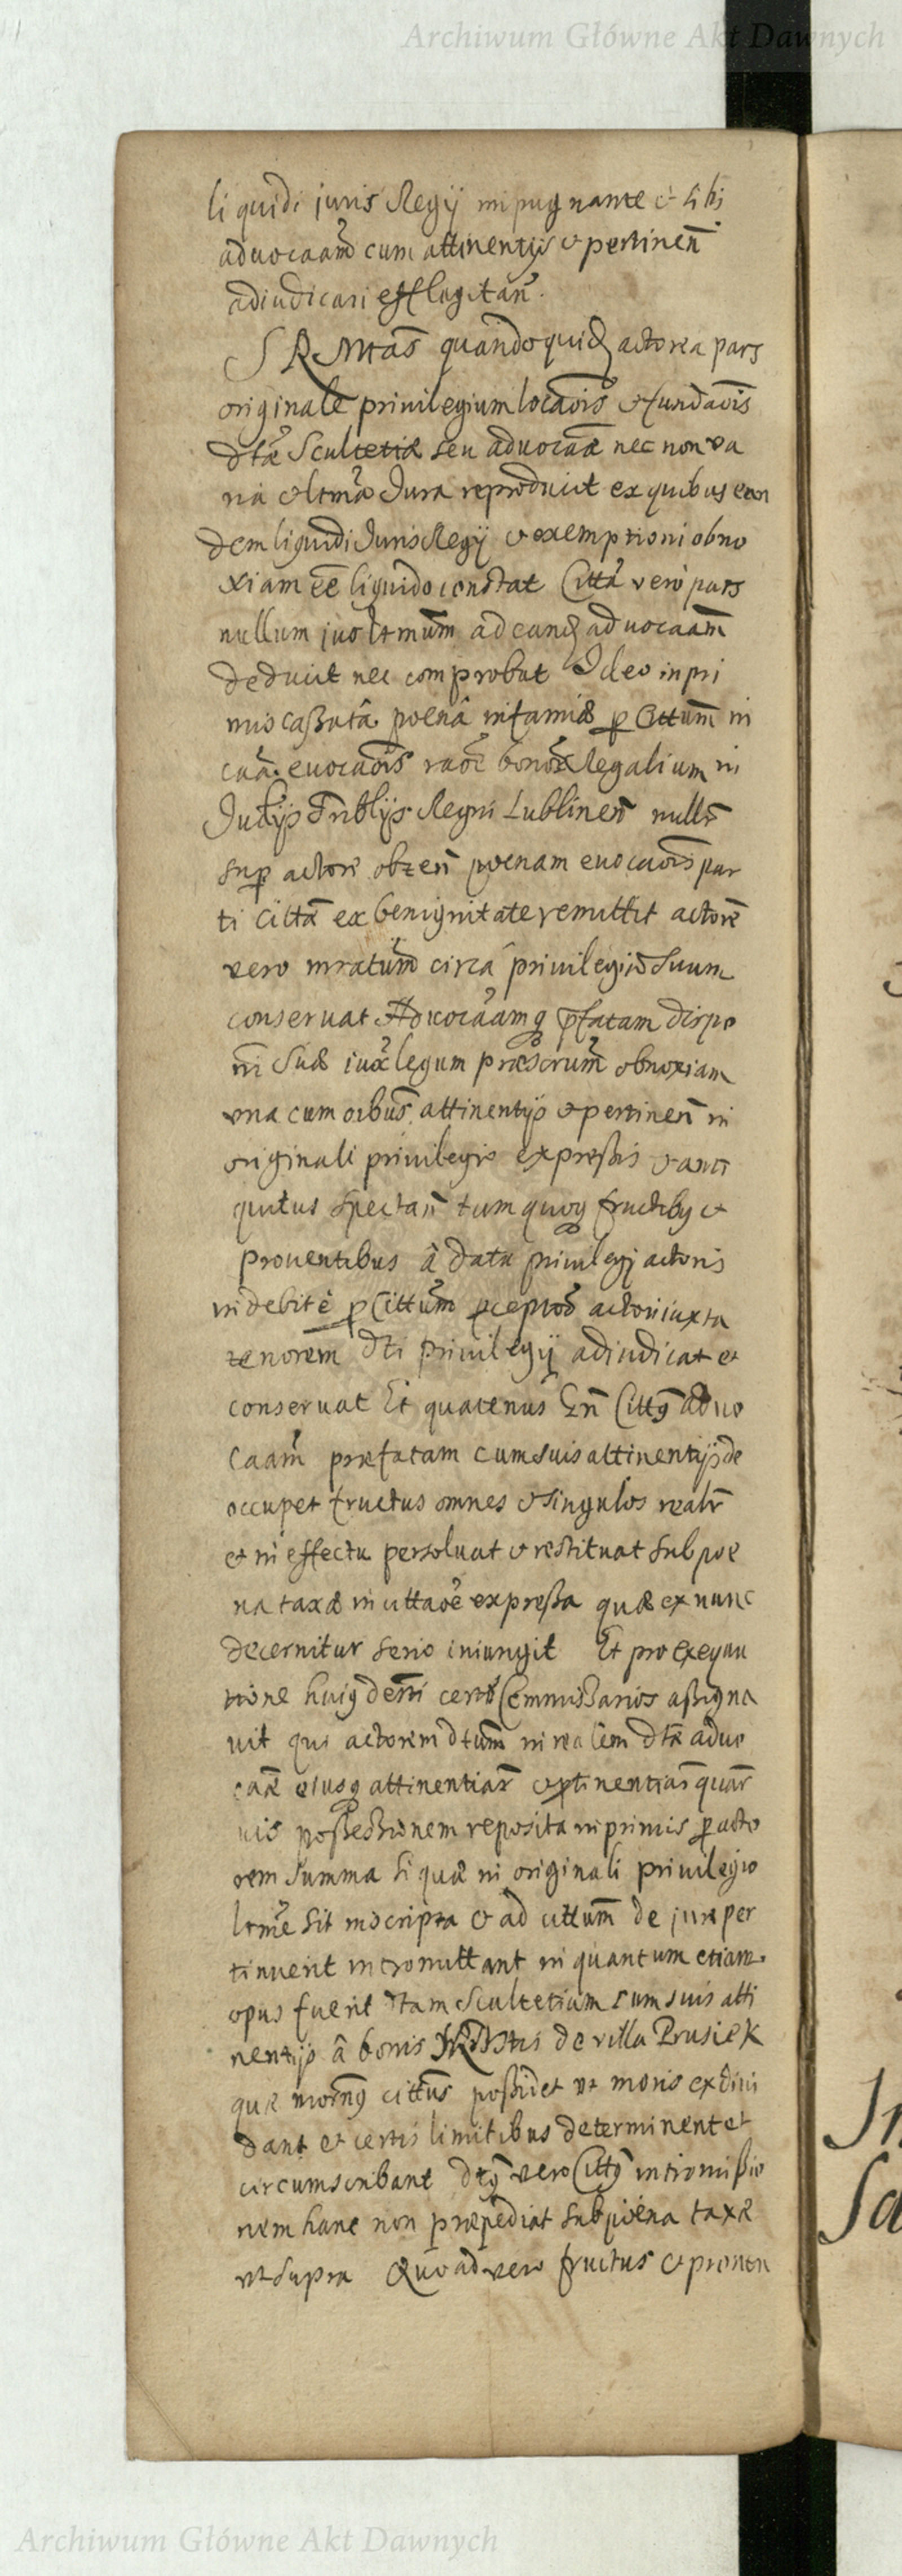 Archiwum Główne Akt Dawnych
liquidi juris Regij impugnante et sibi
aduocaām cum attinentijs et pertineñ
adiudicari efflagitañ.
S R Mtas quandoquid actorea pars
originale priuilegium locaōis et fundaōis
dtæ Scultetiæ seu aduocaæ nec non va
ria et ltima Jura reproducit ex quibus ean
dem liquidi Juris Regij et exemptioni obno
xiam ēē liquido constat Citta vero pars
nullum jus ltmūm ad eand aduocaam
deducit nec comprobat Ideo inpri
mis cassatâ poenâ infamiæ p Cittum in
cāā euocaōis raōe bonor Regalium in
Judijs Triblijs Regni Lublineñ
sup actore obteñ poenam euocaōis par
ti cittā ex benignitate remittit actorē
vero mratum circa priuilegiū Suum
conseruat Aduocaamq pfatam dispo
ñi Suæ iuxa legum præscrum obnoxiam
vna cum oibus attinentijs et pertineñ in
originali priuilegio expressis et anti
quitus spectañ tum quoq fructibq et
prouentibus â data priuilegj actoris
indebitè p Cittum pceptos actori iuxta
tenorem dti priuilegij adiudicat et
conseruat Et quatenus Cittq aduo
caam præfatam cum suis attinentijs de
occupet fructus omnes et singulos realr
et in effectu persoluat et restituat sub poe
na taxæ in cittaōe expressa quæ ex nunc
decernitur serio iniungit Et pro exequu
tione huiq certos Commissarios assigna
uit qui actorem dtum in realem dtæ aduo
caæ eiusq attinentiar et ptinentiar quar
uis possessionem reposita inprimis p acto
rem summa si quæ in originali priuilegio
ltme sit inscripta et ad cittum de jure per
tinuerit intromittant in quantum etiam
opus fuerit dtam Scultetiam cum suis atti
nentijs â bonis de villa Prusiek
quæ cittus possidet vt moris ex diui
dant et certis limitibus determinent et
circumscribant dtq vero Cittq intromissio
nem hanc non præpediat sub poena taxæ
vt supra Quo ad vero fructus et prouen
Archiwum Główne Akt Dawnych